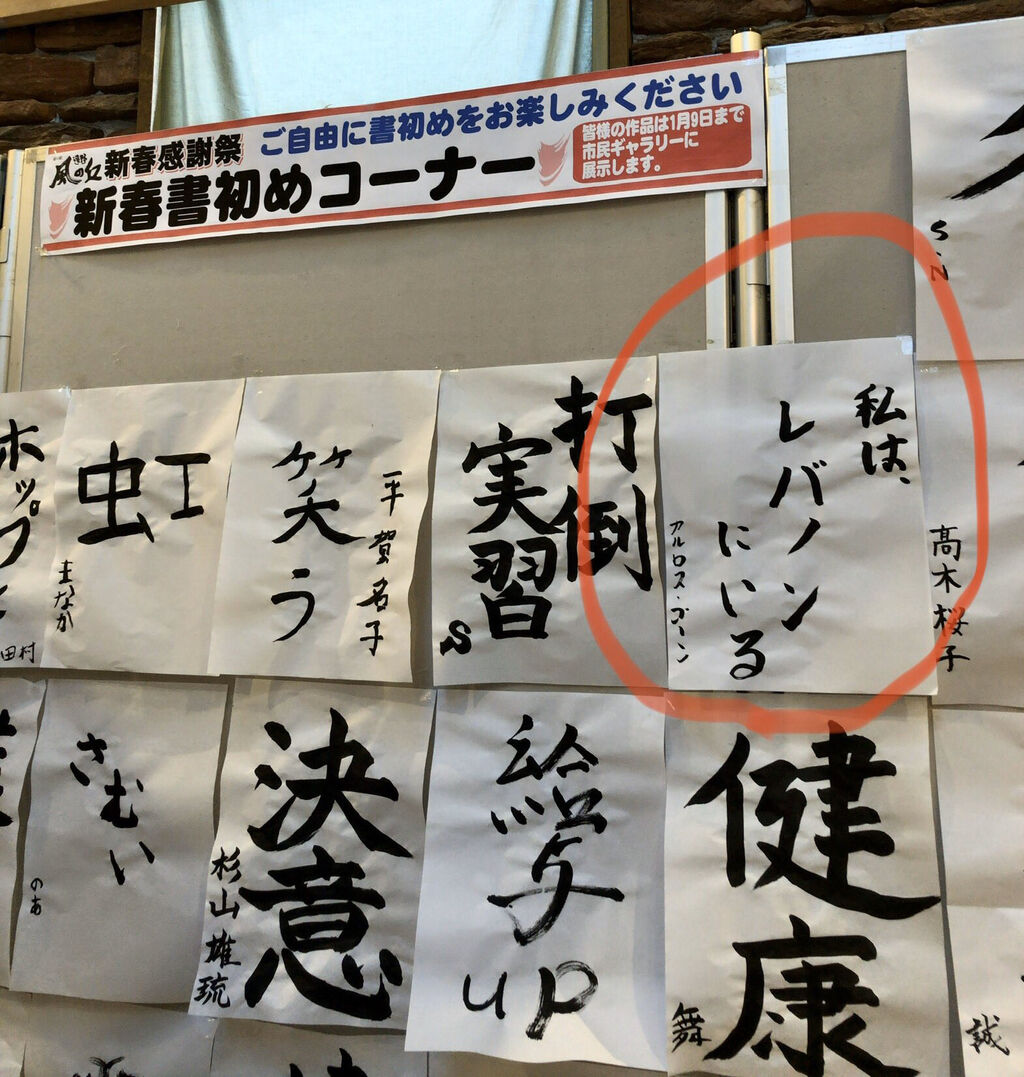 風の丘
新春感謝祭
ご自由に書初めをお楽しみください
新春書初めコーナー
皆様の作品は1月9日まで
市民ギャラリーに
展示します。
S.N
私は、
レバノン
にいる
アルロス・ゴーン
高木桜子
打倒
実習
S
笑う
平賀名子
虹
ホップ
田村
健康
舞
給与
up
決意
杉山雄琉
さむい
のあ
誠